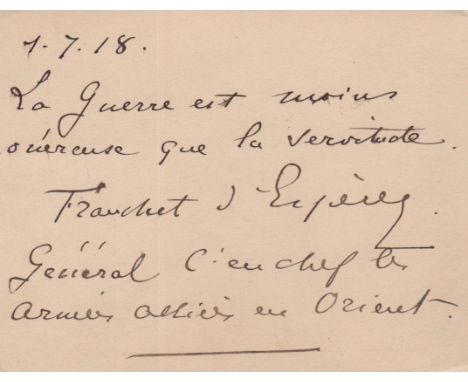 1.7.18.
La Guerre est moins
onéreuse que la servitude.
Franchet d'Espèrey.
Général Ct en chef les
armées alliées en Orient.